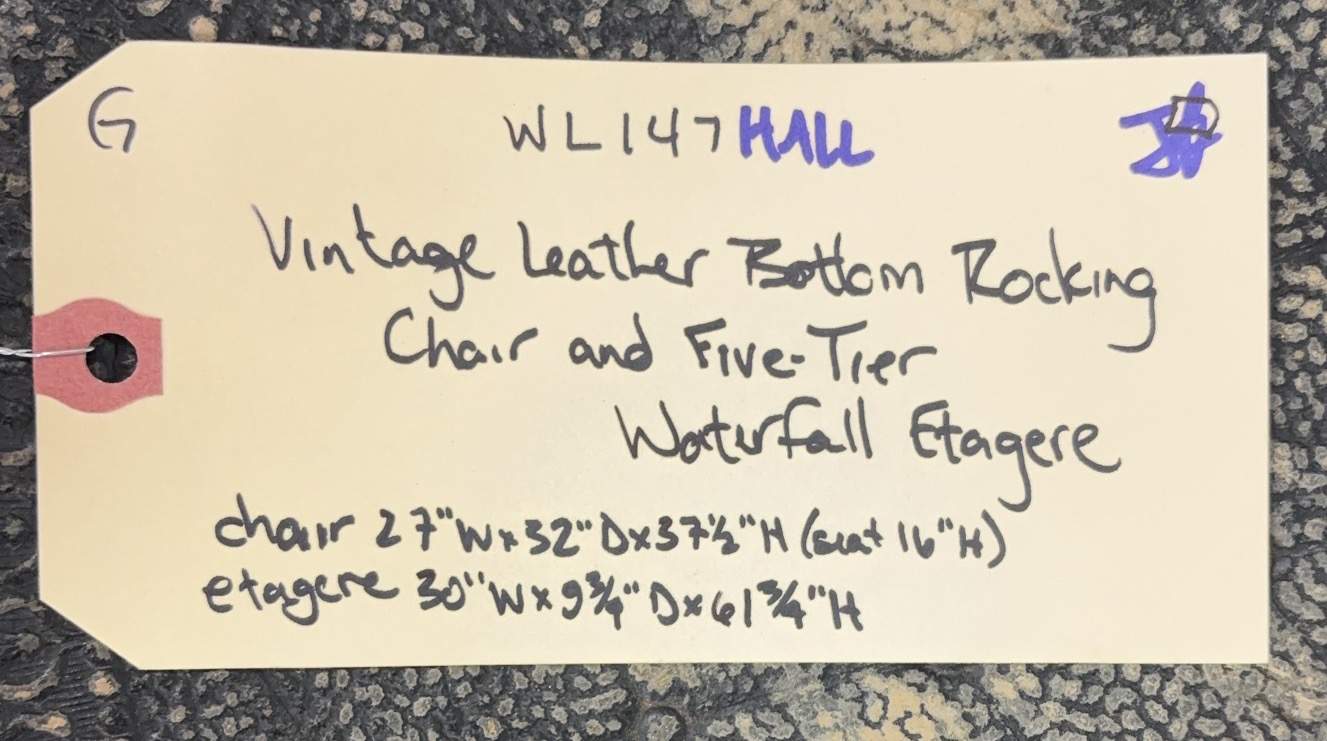 G WL147 HALL
Vintage Leather Bottom Rocking
Chair and Five-Tier
Waterfall Etagere
chair 27"W x 32"D x 37½"H (seat 16"H)
etagere 30"W x 9¾"D x 61¾"H